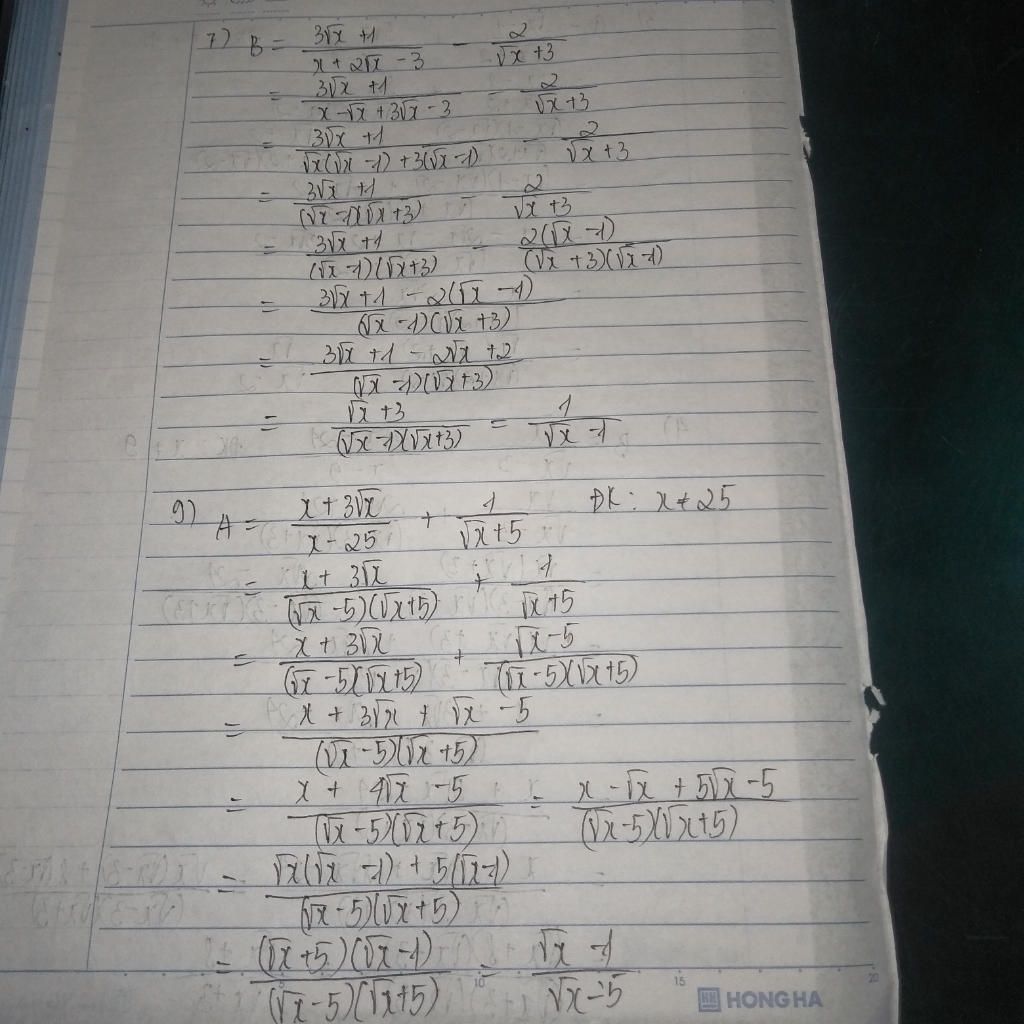 7) B = (3√x + 1)/(x + 2√x - 3) - 2/(√x + 3)
= (3√x + 1)/(x - √x + 3√x - 3) - 2/(√x + 3)
= (3√x + 1)/(√x(√x - 1) + 3(√x - 1)) - 2/(√x + 3)
= (3√x + 1)/((√x - 1)(√x + 3)) - 2/(√x + 3)
= (3√x + 1)/((√x - 1)(√x + 3)) - 2(√x - 1)/((√x + 3)(√x - 1))
= (3√x + 1 - 2(√x - 1))/((√x - 1)(√x + 3))
= (3√x + 1 - 2√x + 2)/((√x - 1)(√x + 3))
= (√x + 3)/((√x - 1)(√x + 3)) = 1/(√x - 1)
9) A = (x + 3√x)/(x - 25) + 1/(√x + 5) ĐK: x ≠ 25
= (x + 3√x)/((√x - 5)(√x + 5)) + 1/(√x + 5)
= (x + 3√x)/((√x - 5)(√x + 5)) + (√x - 5)/((√x - 5)(√x + 5))
= (x + 3√x + √x - 5)/((√x - 5)(√x + 5))
= (x + 4√x - 5)/((√x - 5)(√x + 5)) = (x - √x + 5√x - 5)/((√x - 5)(√x + 5))
= (√x(√x - 1) + 5(√x - 1))/((√x - 5)(√x + 5))
= ((√x + 5)(√x - 1))/((√x - 5)(√x + 5)) = (√x - 1)/(√x - 5)
10 15 20
HONG HA